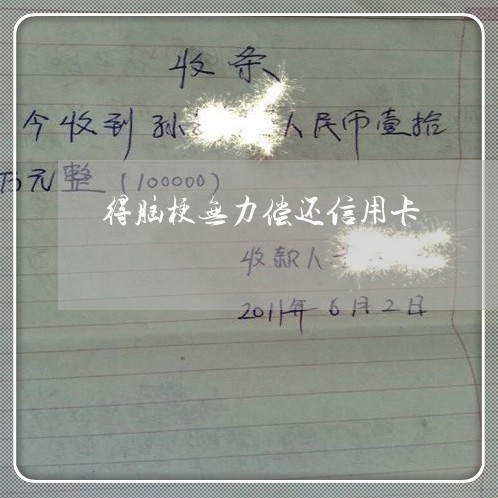 收条
今收到孙 人民币壹拾
万元整(100000)
得脑梗無力偿还信用卡
收款人
2011年6月2日